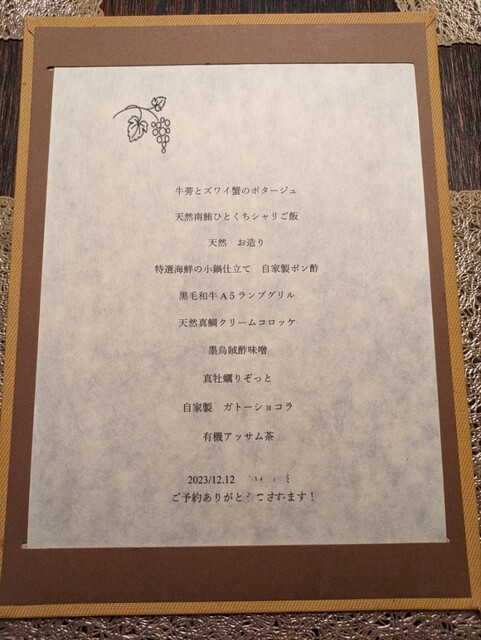 牛蒡とズワイ蟹のポタージュ
天然南鮪ひとくちシャリご飯
天然　お造り
特選海鮮の小鍋仕立て　自家製ポン酢
黒毛和牛A5ランプグリル
天然真鯛クリームコロッケ
墨烏賊酢味噌
真牡蠣りぞっと
自家製　ガトーショコラ
有機アッサム茶
2023/12.12
ご予約ありがとうございます！